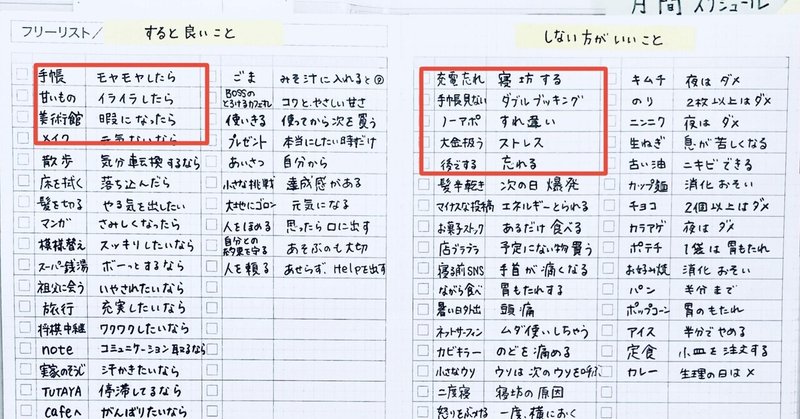 月間スケジュール
フリーリスト/ すると良いこと
手帳 モヤモヤしたら
甘いもの イライラしたら
美術館 暇になったら
メイク 元気ないなら
散歩 気分転換するなら
床を拭く 落ち込んだら
髪を切る やる気を出したい
マンガ さみしくなったら
模様替え スッキリしたいなら
スーパー銭湯 ボーっとするなら
祖父に会う いやされたいなら
旅行 充実したいなら
将棋中継 ワクワクしたいなら
note コミュニケーション取るなら
実家のそうじ 汗かきたいなら
TUTAYA 停滞してるなら
cafeへ がんばりたいなら
ごま みそ汁に入れると
BOSSのとろけるカフェオレ コクと、やさしい甘さ
使いきる 使ってから次を買う
プレゼント 本当にしたい時だけ
あいさつ 自分から
小さな挑戦 達成感がある
大地にゴロン 元気になる
人をほめる 思ったら口に出す
自分との約束を守る あそぶのも大切
人を頼る あせらず、Helpを出す
しない方がいいこと
充電忘れ 寝坊する
手帳見ない ダブルブッキング
ノーアポ すれ違い
大金扱う ストレス
後でする 忘れる
髪半乾き 次の日爆発
マイナスな投稿 エネルギーとられる
お菓子ストック あるだけ食べる
店ブラブラ 予定にない物買う
寝る前SNS 手首が痛くなる
ながら食べ 胃もたれする
暑い日外出 頭痛
ネットサーフィン ムダ使いしちゃう
カビキラー のどを痛める
小さなウソ ウソは次のウソを呼ぶ
二度寝 寝坊の原因
怒りをぶつける 一度、横におく
キムチ 夜はダメ
のり 2枚以上はダメ
ニンニク 夜はダメ
生ねぎ 息が苦しくなる
古い油 ニキビできる
カップ麺 消化おそい
チョコ 2個以上はダメ
カラアゲ 夜はダメ
ポテチ 1袋は胃もたれ
お好み焼 消化おそい
パン 半分まで
ポップコーン 胃のもたれ
アイス 半分でやめる
定食 小皿を注文する
カレー 生理の日は×